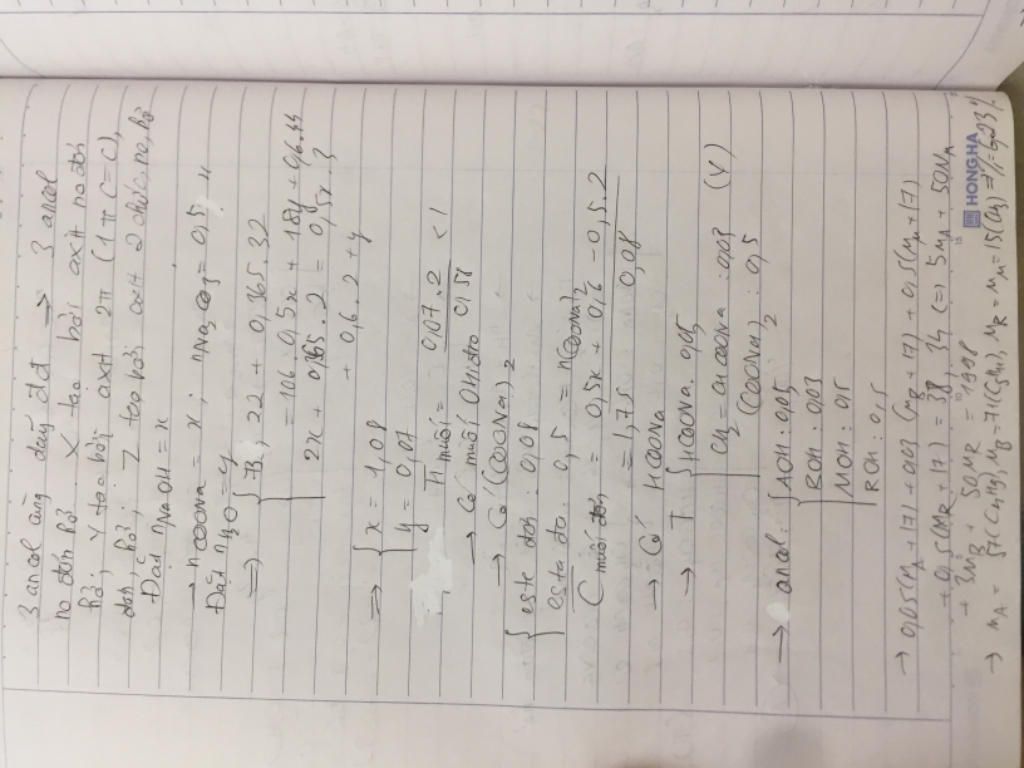 3 ancol cùng dãy đđ → 3 ancol
no đơn hở. X tạo bởi axit no đơn
hở; Y tạo bởi axit 2π (1π C=C),
đơn, hở; Z tạo bởi axit 2 chức, no, hở
Đặt nNaOH = x
→ nCOONa = x; nNa2CO3 = 0,5x
Đặt nH2O = y
⇒ { 73,22 + 0,365.32
= 106.0,5x + 18y + 0,6.44
2x + 0,365.2 = 0,5x.3
+ 0,6.2 + y
⇒ { x = 1,08
y = 0,07
H muối = 0,07.2 / 0,58 < 1
→ Có muối 0 Hidro
→ Có (COONa)2
{ este đơn: 0,08
este đa: 0,5 = n(COONa)2
C muối đơn = 0,5x + 0,6 - 0,5.2 / 0,08
= 1,75
→ Có HCOONa
→ T { HCOONa: 0,05
CH2=CHCOONa: 0,03 (Y)
(COONa)2: 0,5
→ ancol: { AOH: 0,05
BOH: 0,03
MOH: 0,5
ROH: 0,5
→ 0,05(MA+17) + 0,03(MB+17) + 0,5(MM+17)
+ 0,5(MR+17) = 38,34 (=) 5MA + 50MM
+ 3MB + 50MR = 1998
→ MA = 57 (C4H9), MB = 71 (C5H11), MR = MM = 15 (CH3) ⇒ % = 6,23%
HONGHA